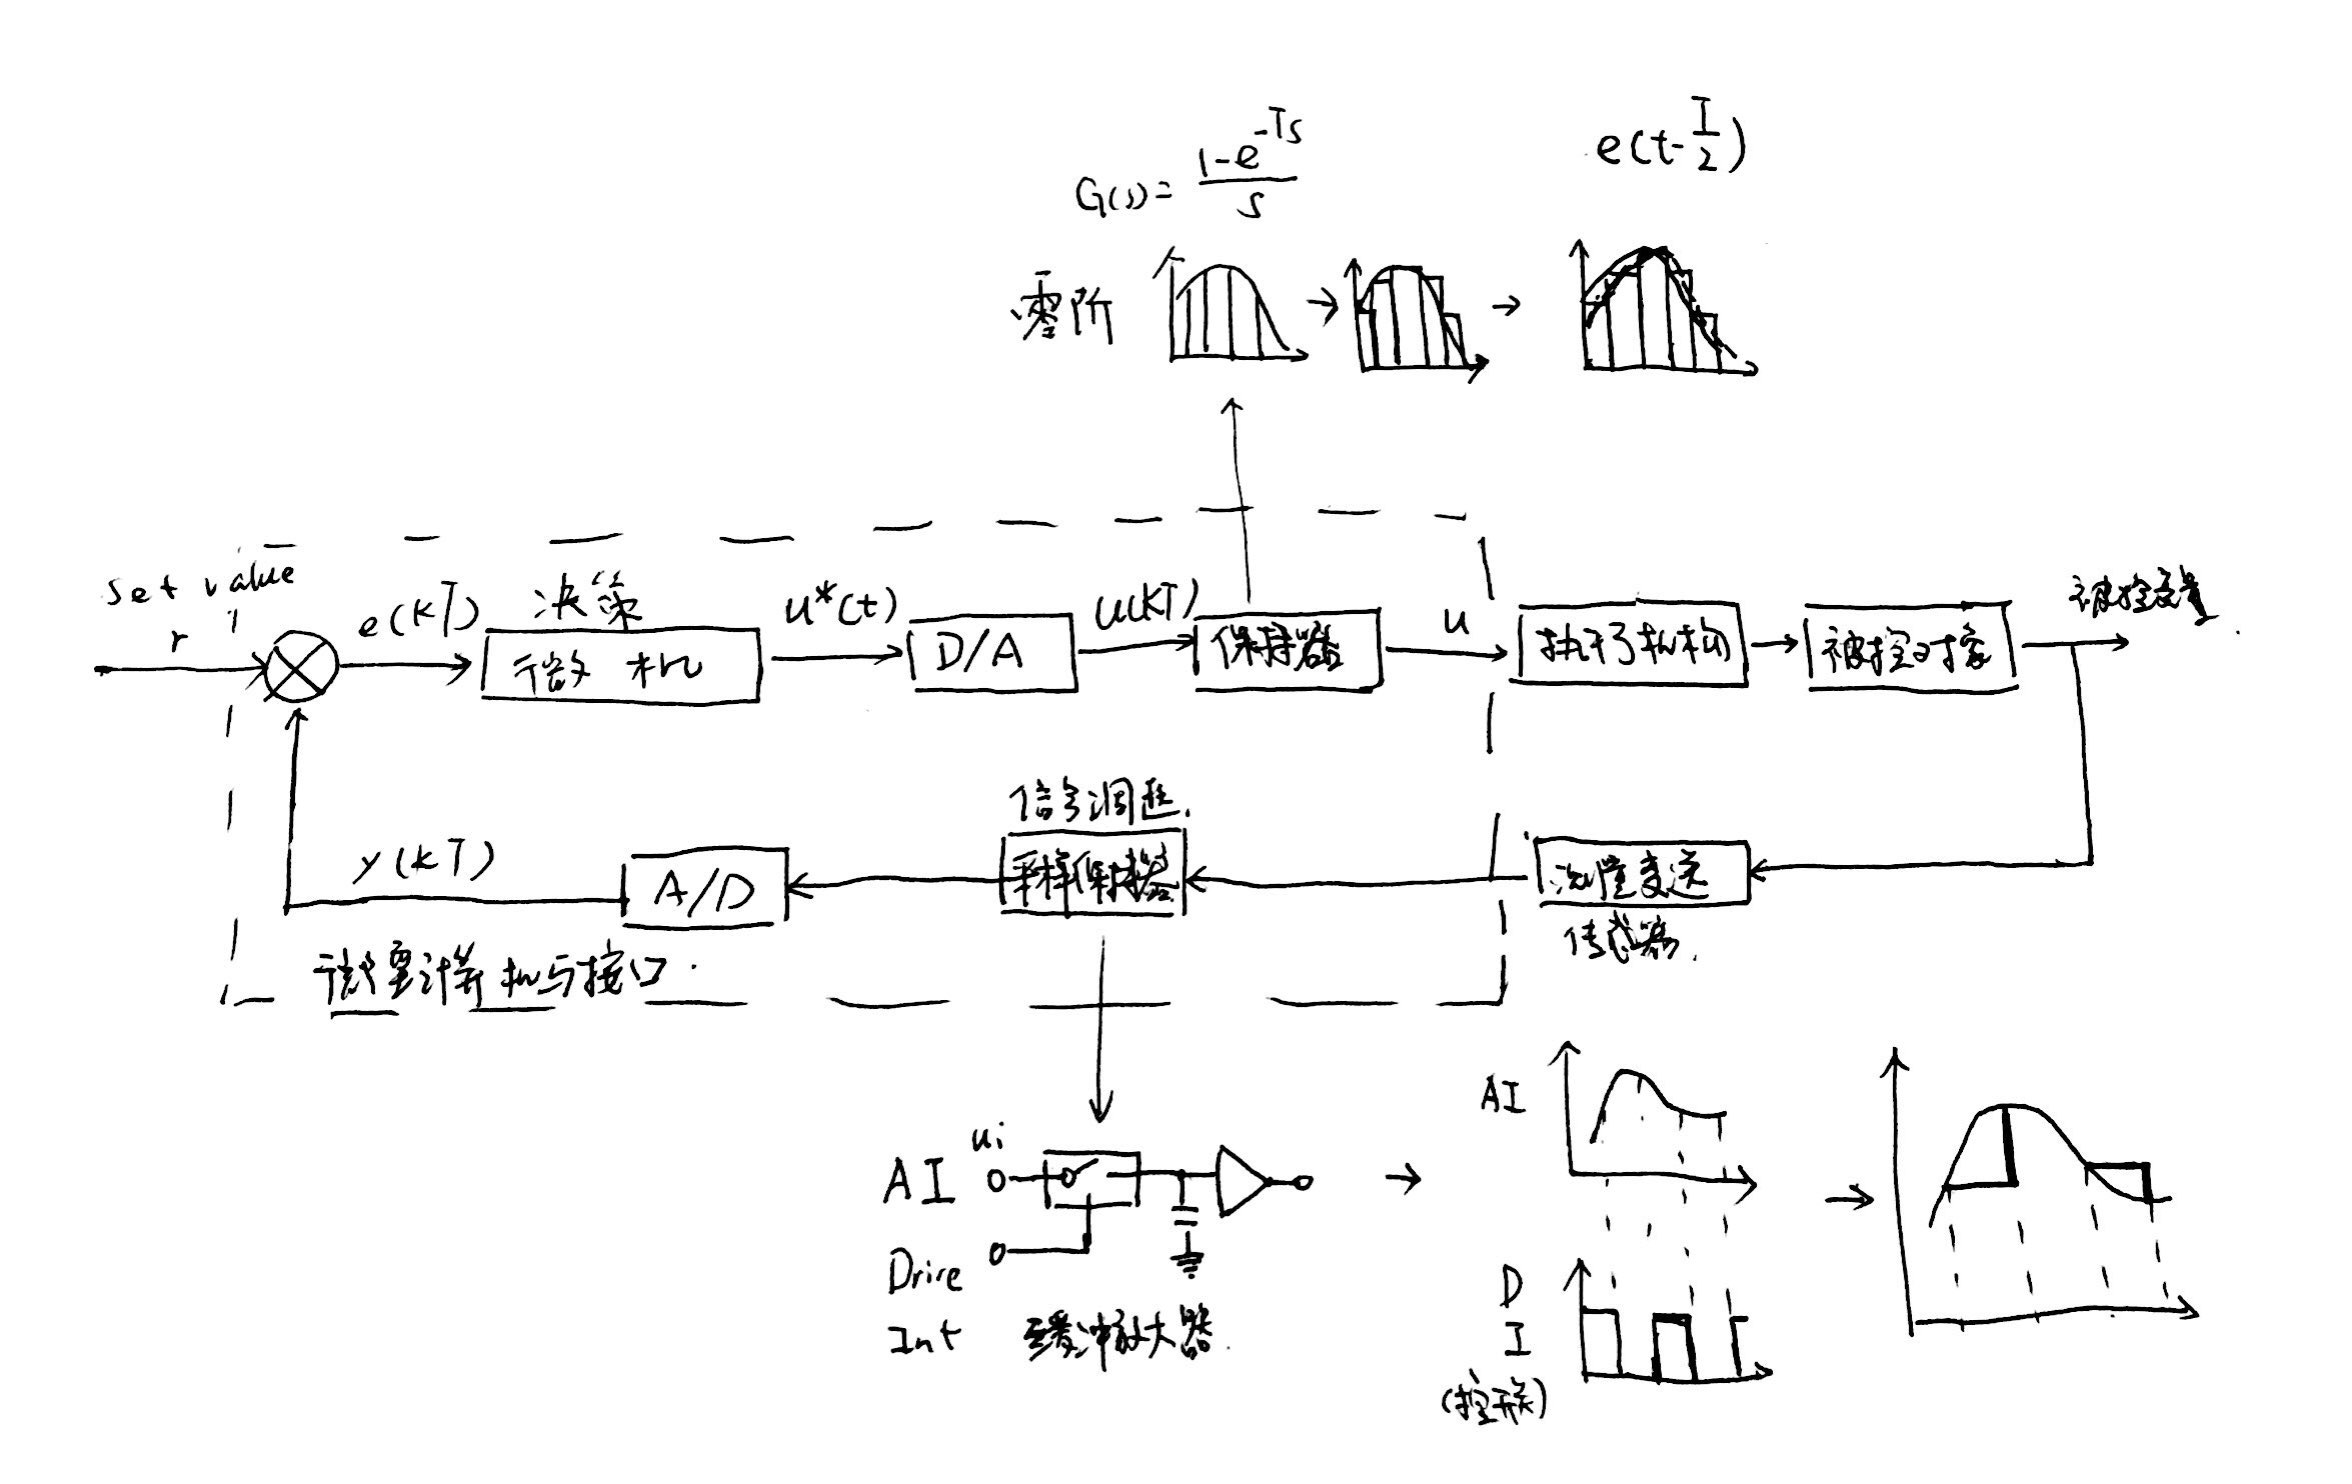 G(s)= (1-e^{-Ts})/s
e(t-T/2)
零阶
set value
r
e(kT)
决策
微机
u*(t)
D/A
u(kT)
保持器
u
执行机构
被控对象
被控变量
信号调理.
采样保持器
y(kT)
A/D
测量变送
传感器.
微型计算机与接口.
AI
ui
Drire
Int
缓冲放大器.
AI
D
I
(控开关)